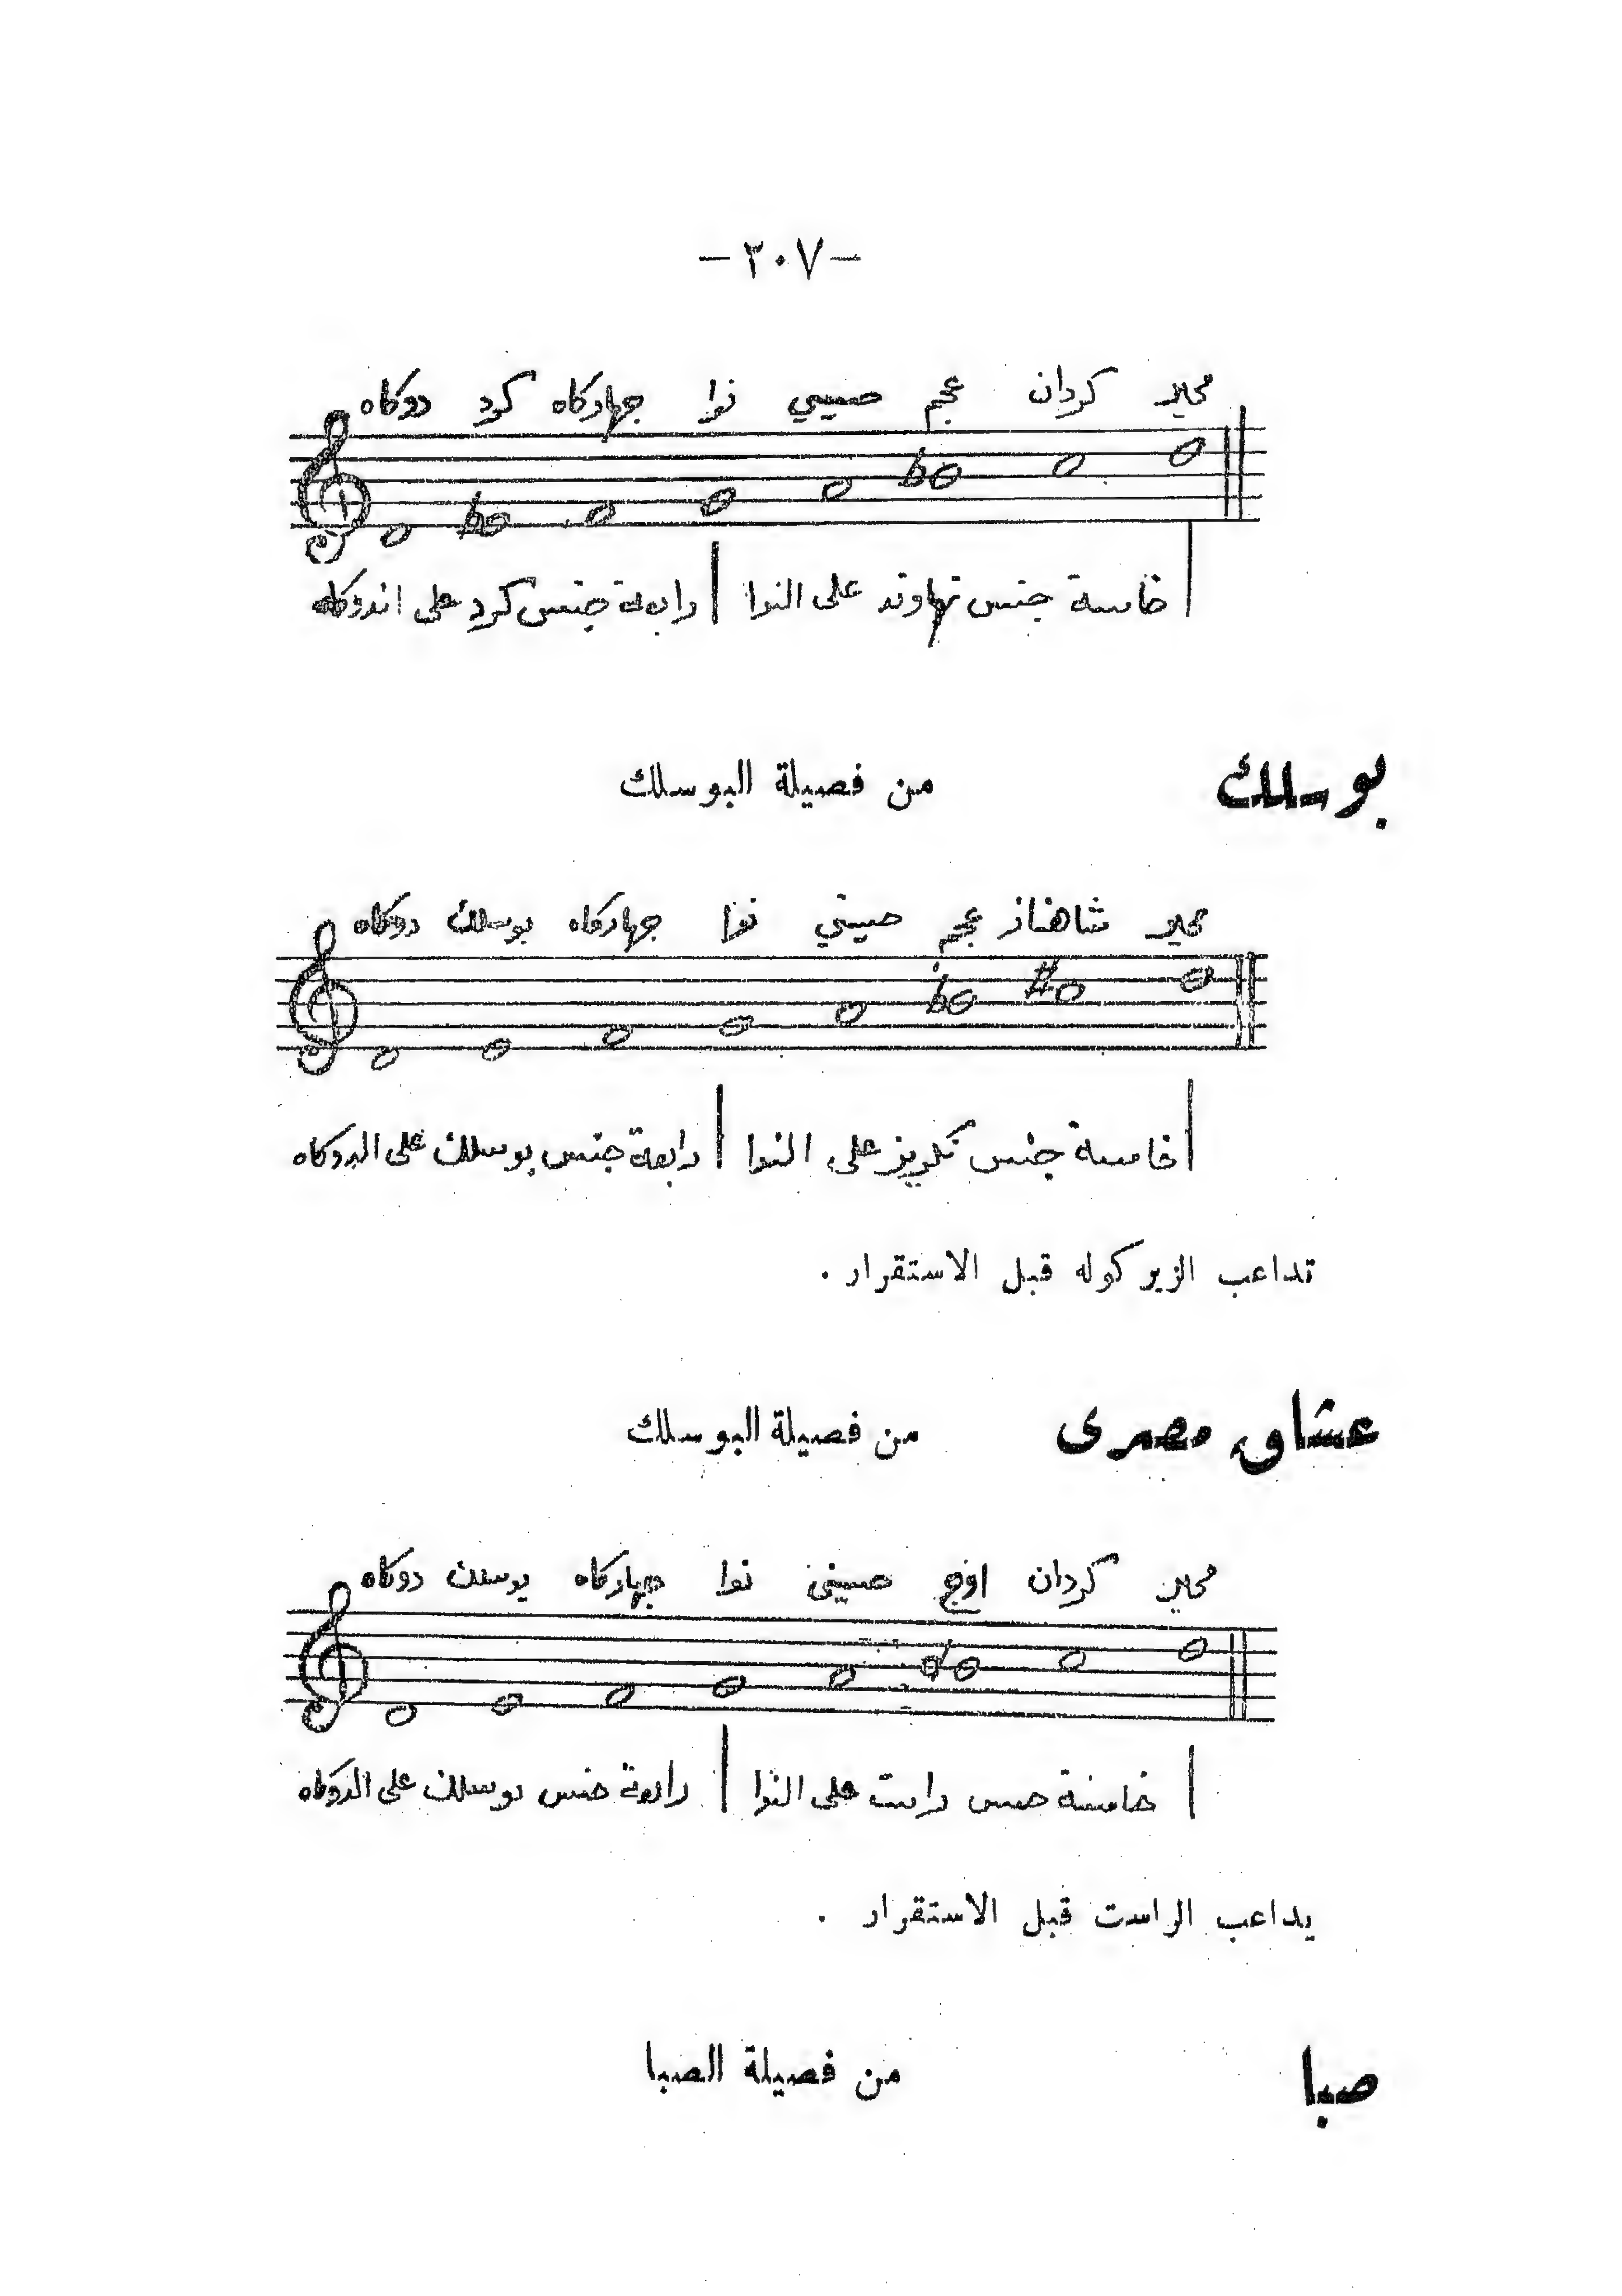 - ٢٠٧ -
محير كردان عجم حسيني نوا جهاركاه كرد دوكاه
خامسة جنس نهاوند على النوا | رابعة جنس كرد على الدوكاه
بوسلك من فصيلة البوسلك
محير شاهناز عجم حسيني نوا جهاركاه بوسلك دوكاه
خامسة جنس نكريز على النوا | رابعة جنس بوسلك على الدوكاه
تداعب الزيركوله قبل الاستقرار .
عشاق مصرى من فصيلة البوسلك
محير كردان اوج حسيني نوا جهاركاه بوسلك دوكاه
خامسة جنس راست على النوا | رابعة جنس بوسلك على الدوكاه
يداعب الراست قبل الاستقرار .
صبا من فصيلة الصبا